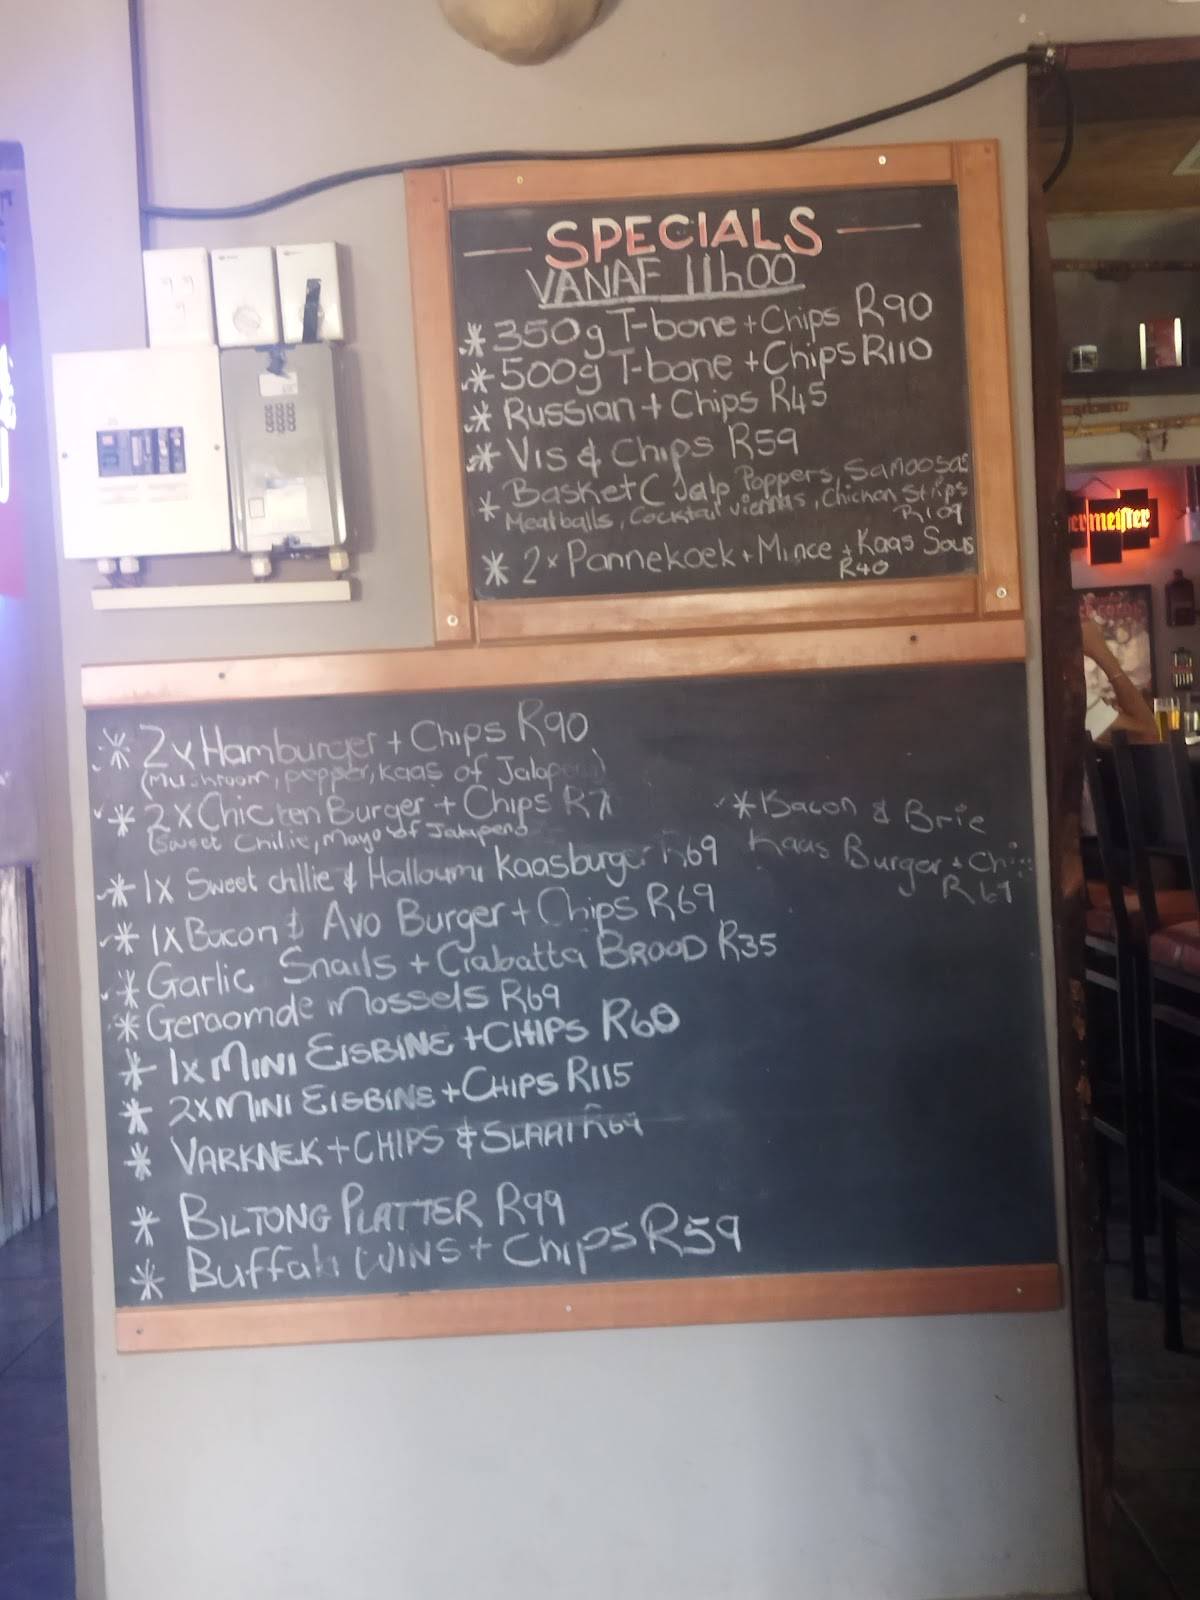 SPECIALS
VANAF 11h00
* 350g T-bone + Chips R90
* 500g T-bone + Chips R110
* Russian + Chips R45
* Vis & Chips R59
* Basket C Jalp Poppers, Samoosas
Meatballs, Cocktail Viennas, Chicken Strips
R109
* 2x Pannekoek + Mince + Kaas Sous
R40
* 2x Hamburger + Chips R90
(Mushroom, pepper, kaas of Jalapeno)
* 2x Chicken Burger + Chips
(Sweet Chillie, Mayo of Jalapeno
* 1x Sweet chillie & Halloumi Kaasburger R69
* 1x Bacon & Avo Burger + Chips R69
* Garlic Snails + Ciabatta BROOD R35
* Geroomde Mossels R69
* 1x MINI EISBINE + CHIPS R60
* 2x MINI EISBINE + CHIPS R115
* VARKNEK + CHIPS & SLAAI R69
* BILTONG PLATTER R99
* Buffalo WINS + Chips R59
* Bacon & Brie
Kaas Burger + Chips
R69
ermeister